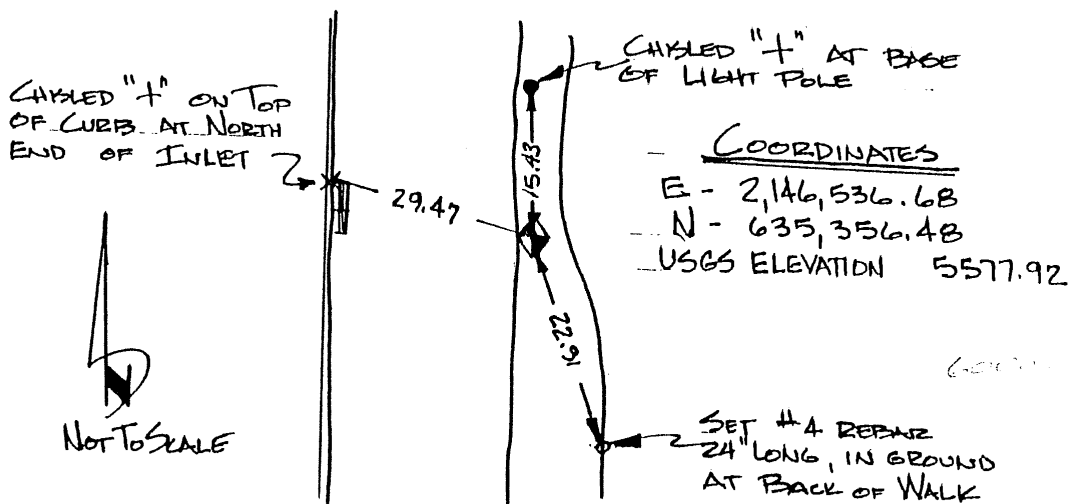 CHISLED "+" ON TOP
OF CURB AT NORTH
END OF INLET
29.47
15.43
22.91
CHISLED "+" AT BASE
OF LIGHT POLE
COORDINATES
E - 2,146,536.68
N - 635,356.48
USGS ELEVATION 5577.92
N
NOT TO SCALE
SET #4 REBAR
24" LONG, IN GROUND
AT BACK OF WALK